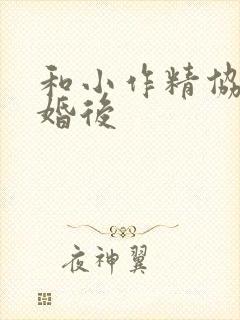 和小作精協
婚後
夜神翼